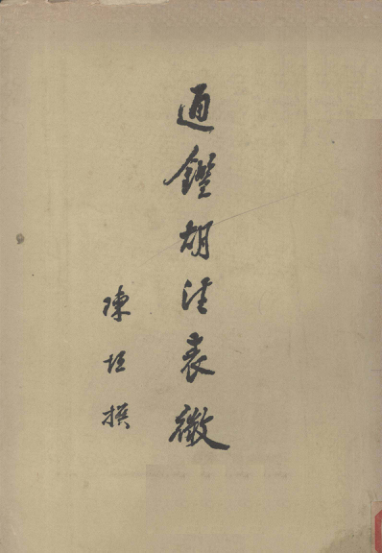 通鑑胡注表微
陳垣撰